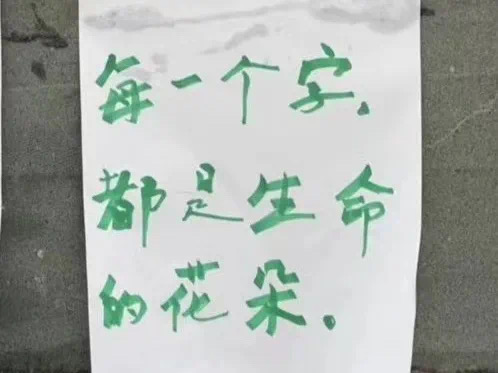 每一个字,
都是生命
的花朵。